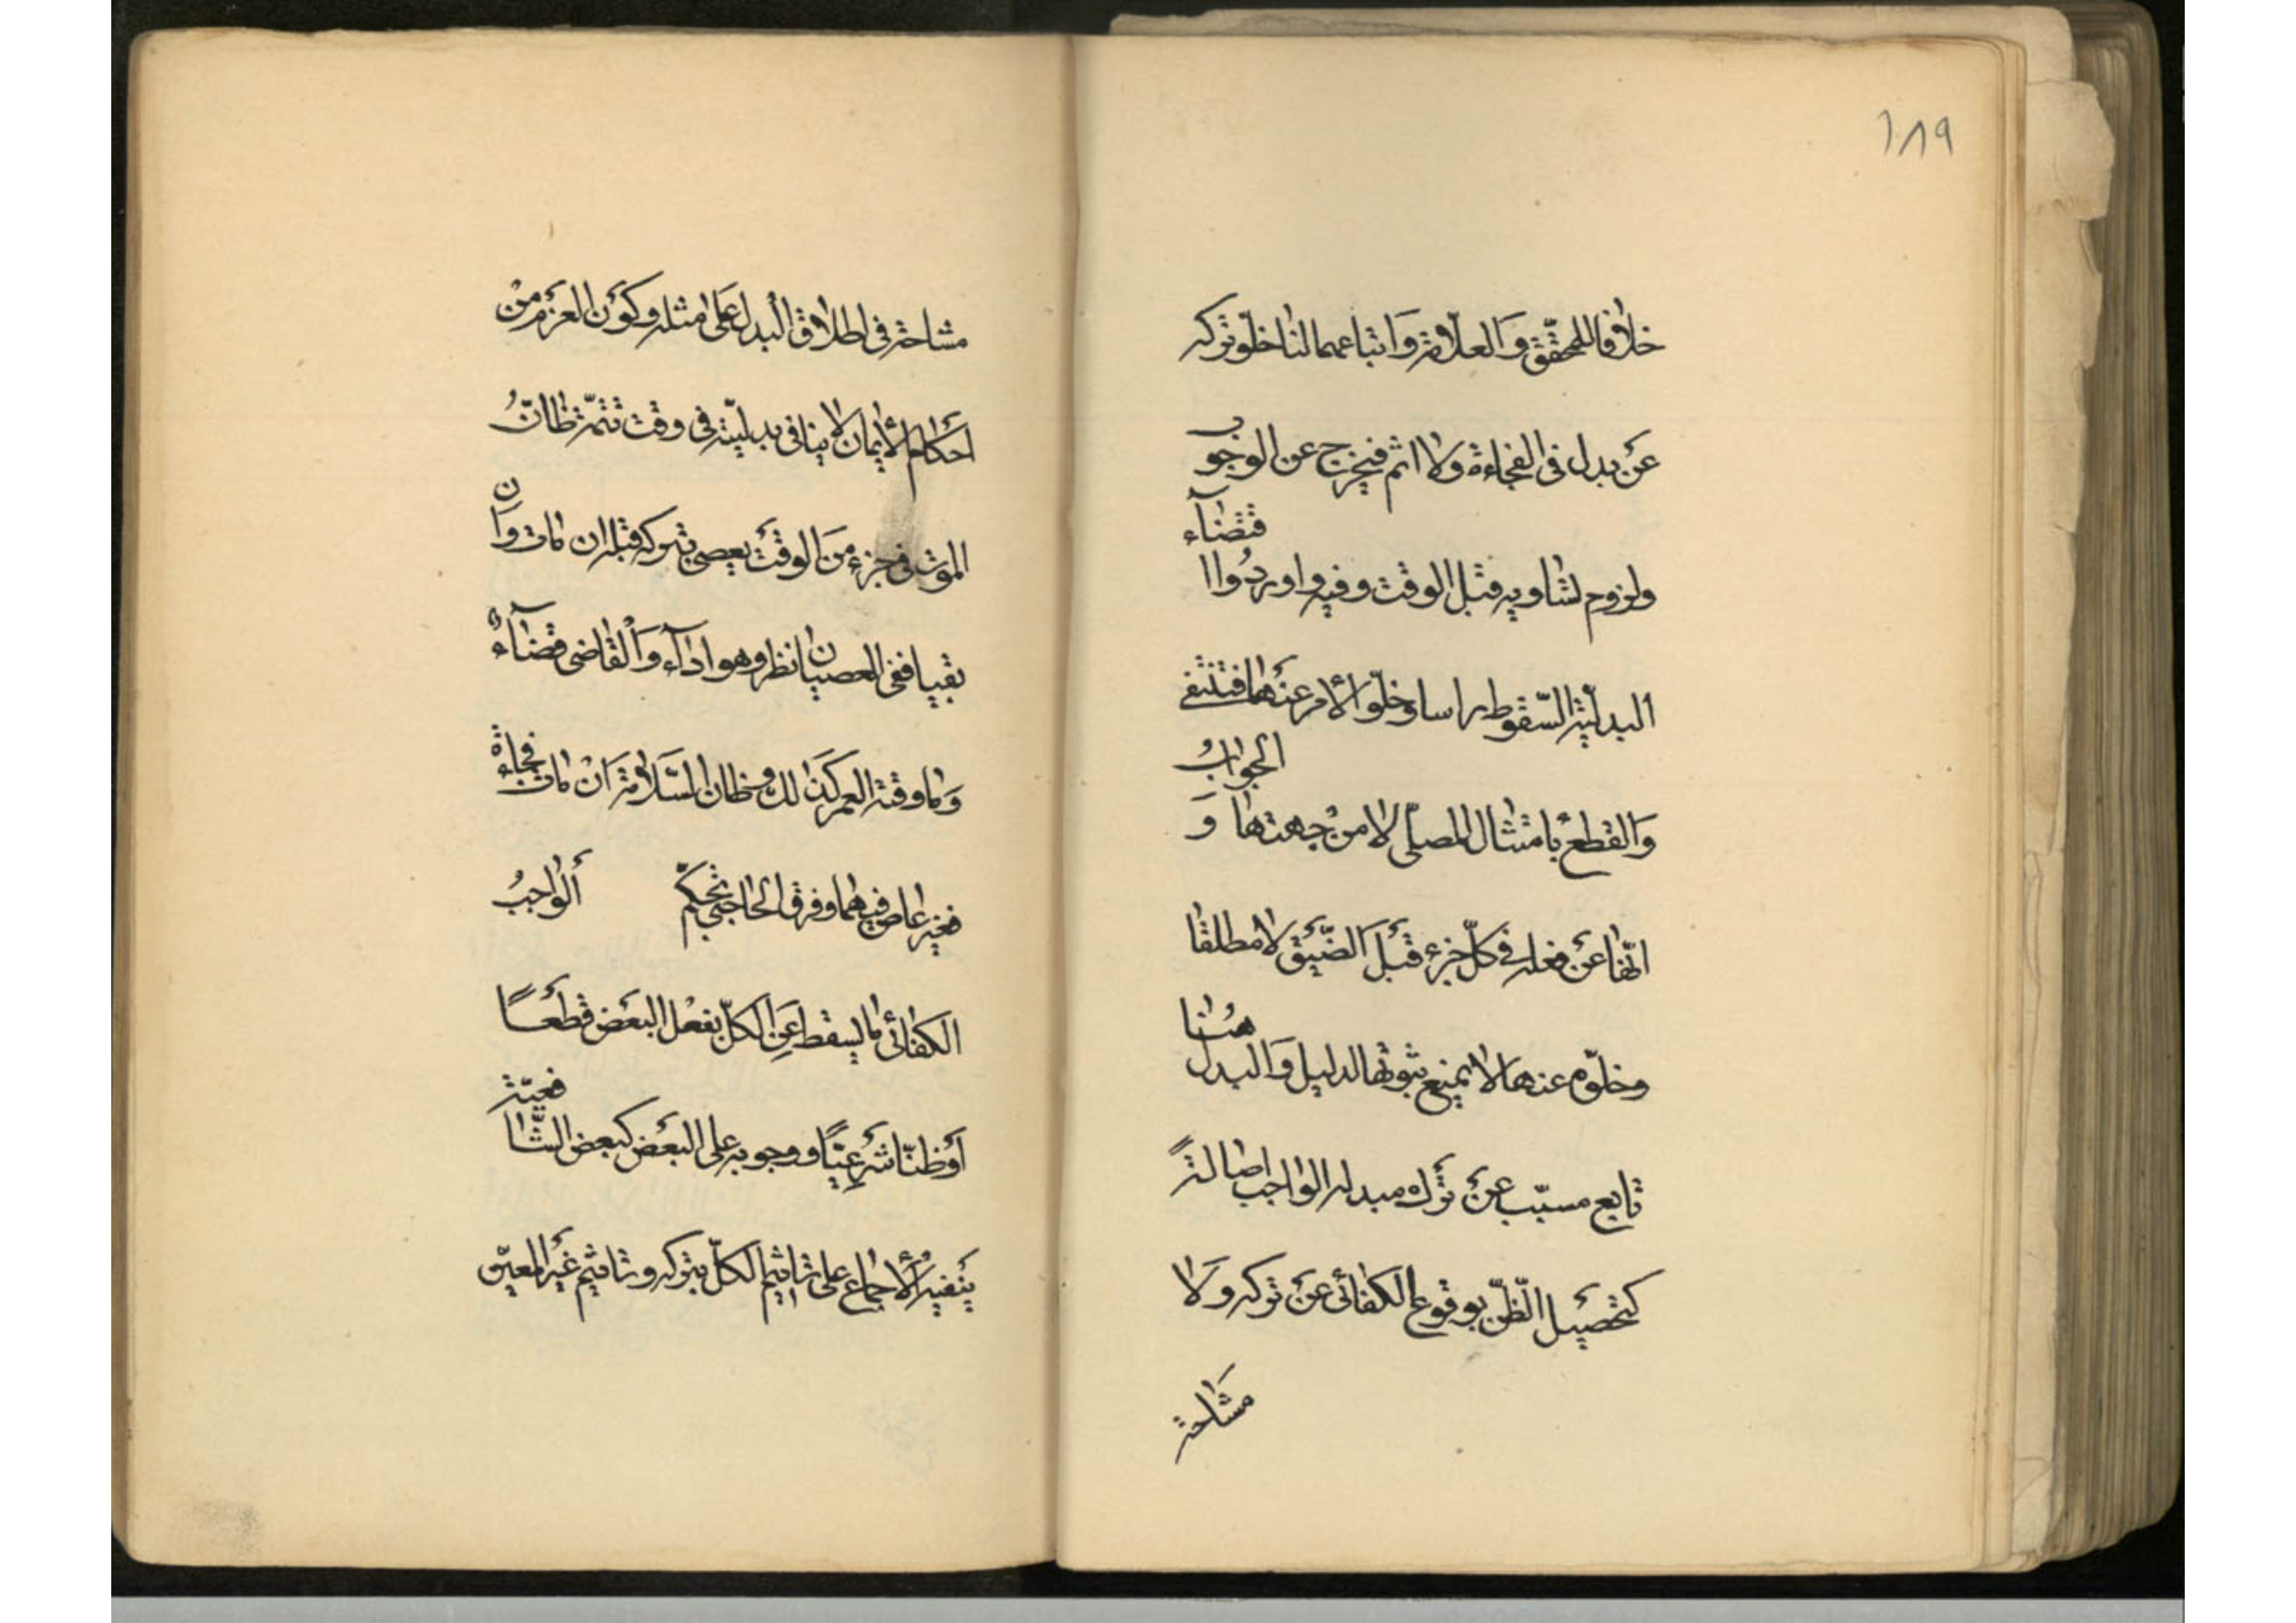 ١٨٩
خلافا للمحقّق وَالعلّامة وَاتباعهما لنا خلّو تركه
عَن بدل فى الفجاءة ولا اثم فيخرج عن الوجوب
ولزوم تساويه قبل الوقت وفيه واوردُوا اقتضآء
البدليّة السّقوط راسا وخلّو الأمر عنهما فتنتفى
وَالقطع بامتثال المصلّى لا من جهتها وَ الجوابُ
انّها عن فعله فى كلّ جزء قبل الضّيق لا مطلقا
وخلّوه عنها لا يمنع ثبوتها لدليل وَالبدل هُنا
تابع مسبّب عن ترك مبدله الواجب اصالةً
كتحصيل الظّنّ بوقوع الكفائى عن تركه وَلا
مشاحة
مشاحة فى اطلاق البدل على مثله وكون العزم من
احكام الأيمان لا ينافى بدليّته فى وقت تتمّة ظانّ
الموت فى جزء من الوقت يعصى بتركه قبله ان مات وَان
بقى ففى العصيان نظر وهو ادآء وَالقاضى قضآء
وَما وقته العمر كذلك وظان السّلامة انْ مات فجاءة
فغير عاص فيهما وفرق الحاجبى تحكّم الواجبُ
الكفائى ما يسقط عَنِ الكلّ بفعل البعض قطعًا
اَو ظنّا شرعيّا ووجوبه على البعض كبعض الشّافعيّة
ينفيه الأجماع على تاثيم الكلّ بتركه وتاثيم غير المعيّن